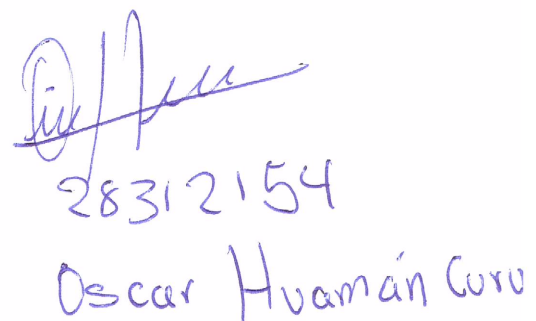 28312154
Oscar Huamán Curu